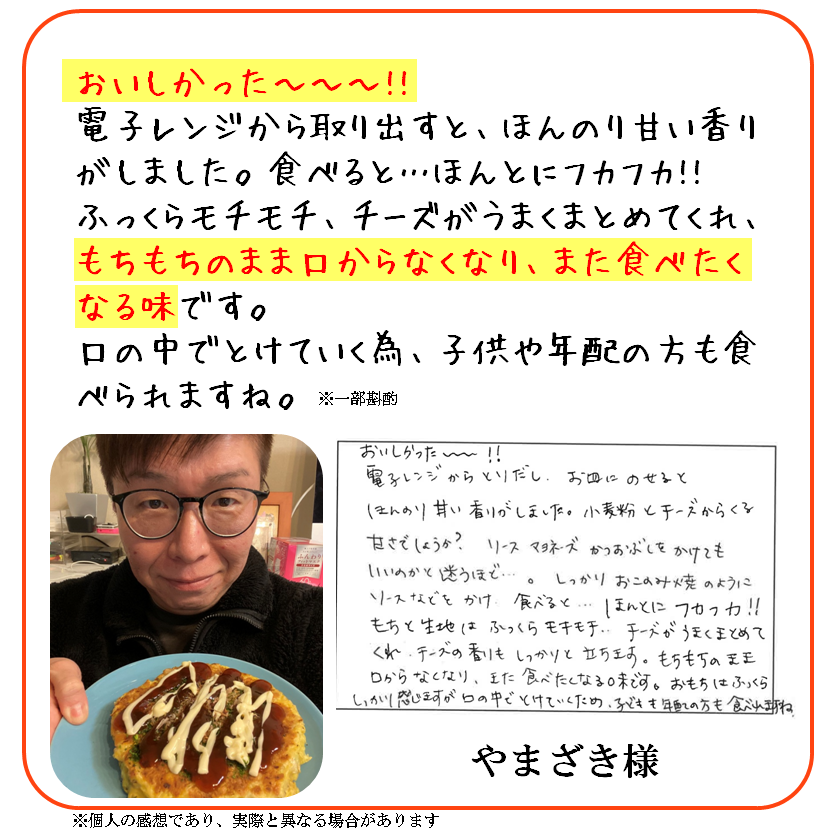 おいしかった～～～!!
電子レンジから取り出すと、ほんのり甘い香り
がしました。食べると…ほんとにフカフカ!!
ふっくらモチモチ、チーズがうまくまとめてくれ、
もちもちのまま口からなくなり、また食べたく
なる味です。
口の中でとけていく為、子供や年配の方も食
べられますね。 ※一部斟酌
おいしかった〜〜!!
電子レンジからとりだし、お皿にのせると
ほんのり甘い香りがしました。小麦粉とチーズからくる
甘さでしょうか? ソース マヨネーズ かつおぶしをかけても
いいのかと迷うほど…。しっかりおこのみ焼のように
ソースなどをかけ 食べると… ほんとにフカフカ!!
もちと生地はふっくらモチモチ、チーズがうまくまとめて
くれ、チーズの香りもしっかりと立ちます。もちもちのまま
口からなくなり、また食べたくなる味です。おもちはふっくら
しっかり感じますが口の中でとけていくため、子どもも年配の方も食べれますね
やまざき様
※個人の感想であり、実際と異なる場合があります